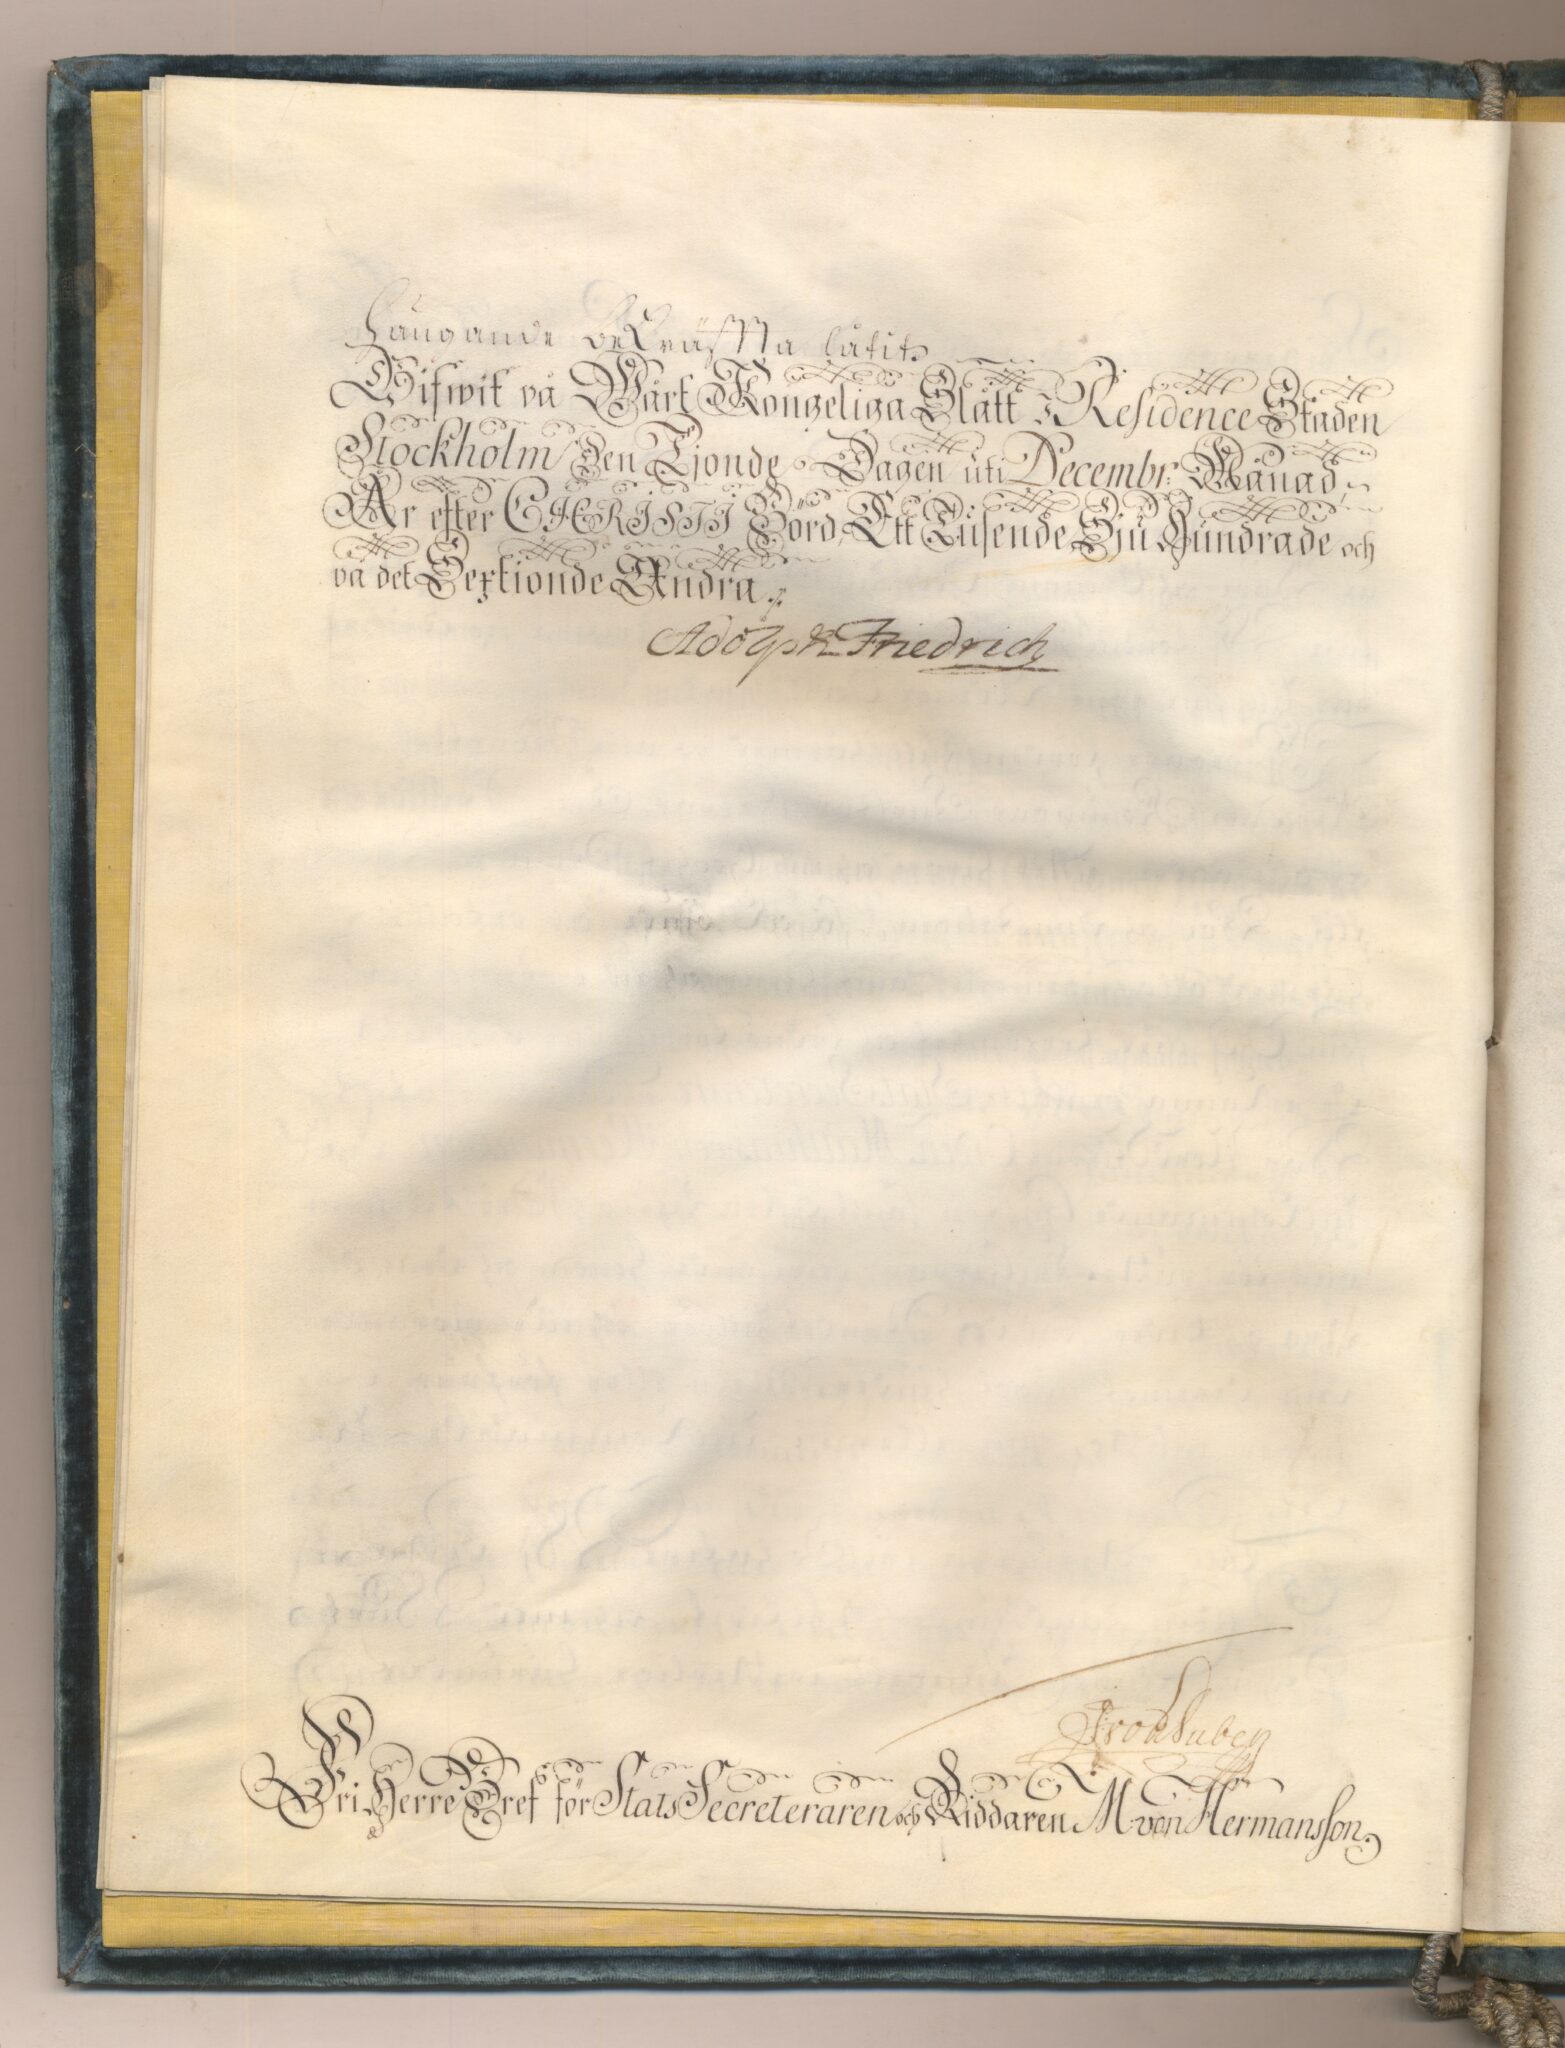 hängande bekräffta låtit.
Gifwit på Wårt Kongeliga Slått i Residence Staden
Stockholm den Tjonde Dagen uti Decembr: Månad
År efter CHRISTI Börd, Ett Tusende Sju Hundrade och
på det Sextionde Andra.
Adolph Friedrich
Fri Herre Bref för Stats Secreteraren och Riddaren M. von Hermansson.